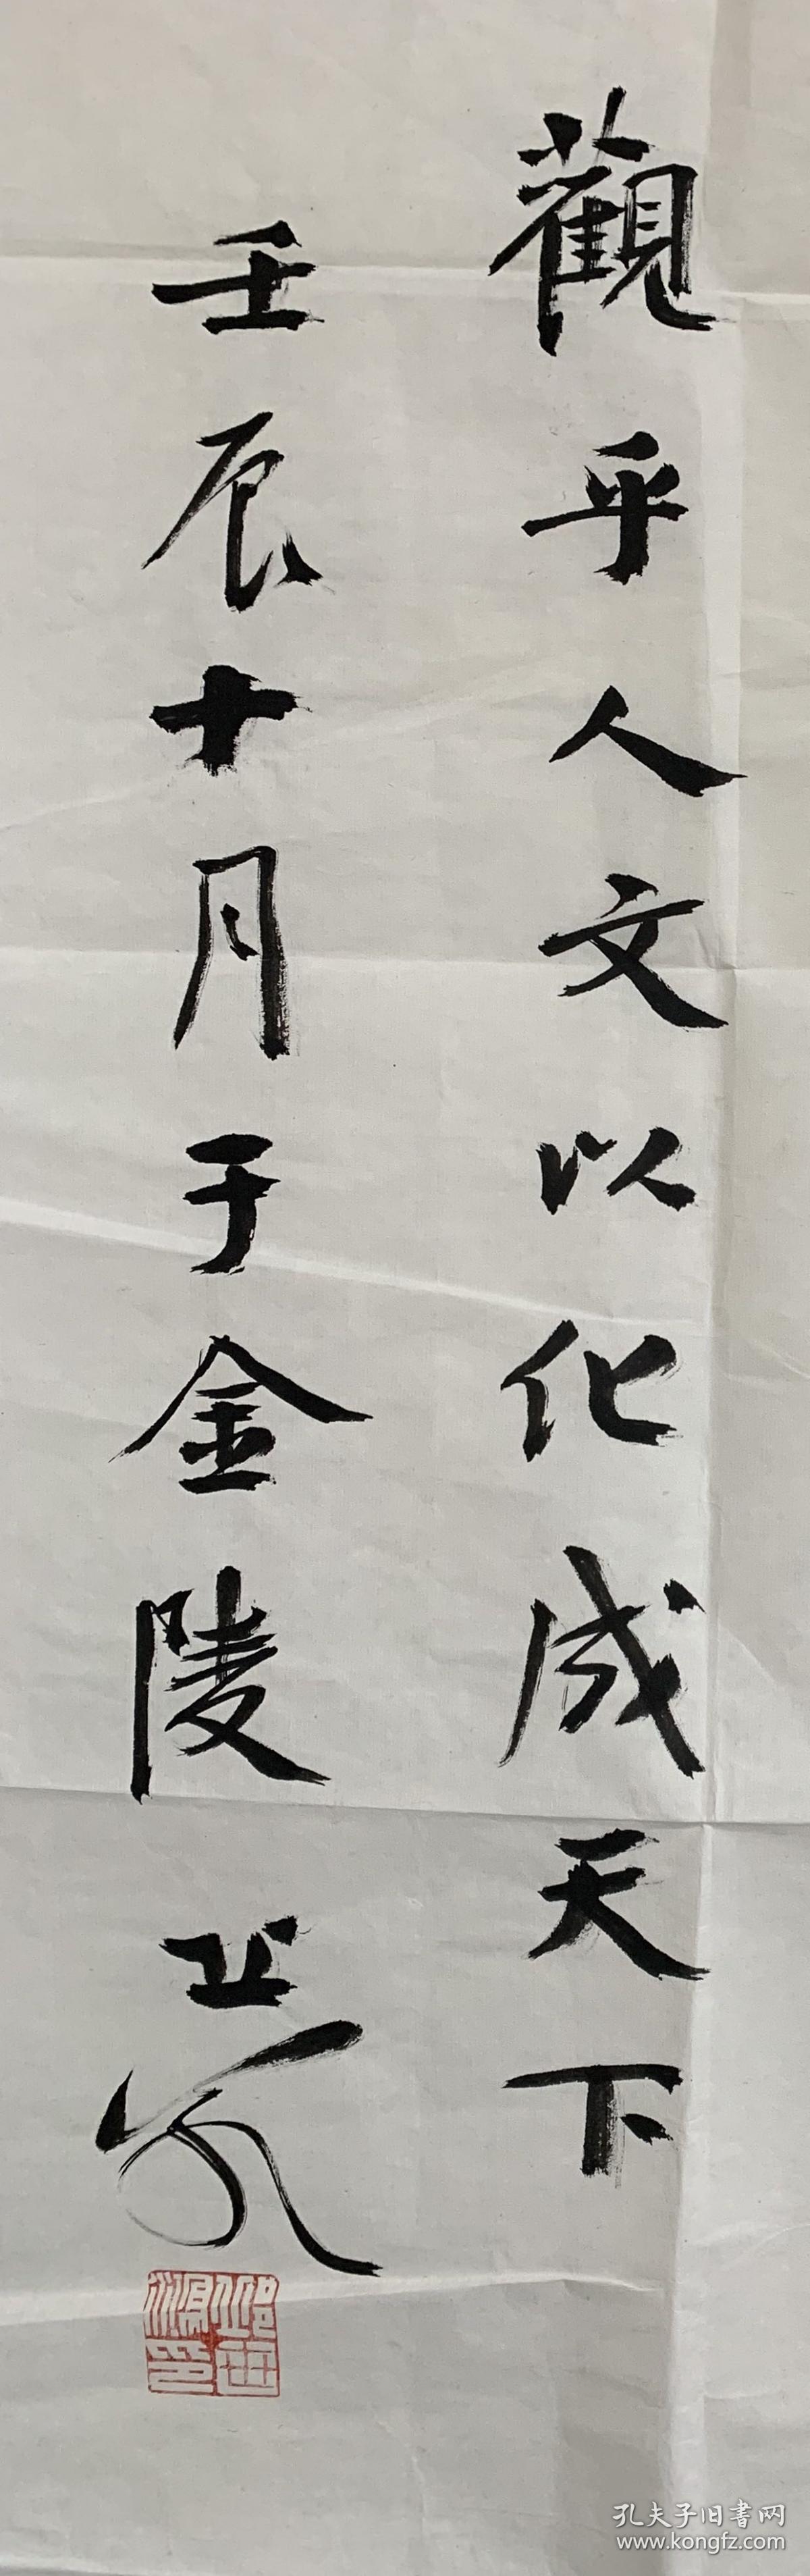 觀乎人文以化成天下
壬辰十月于金陵
孔夫子旧書网
www.kongfz.com